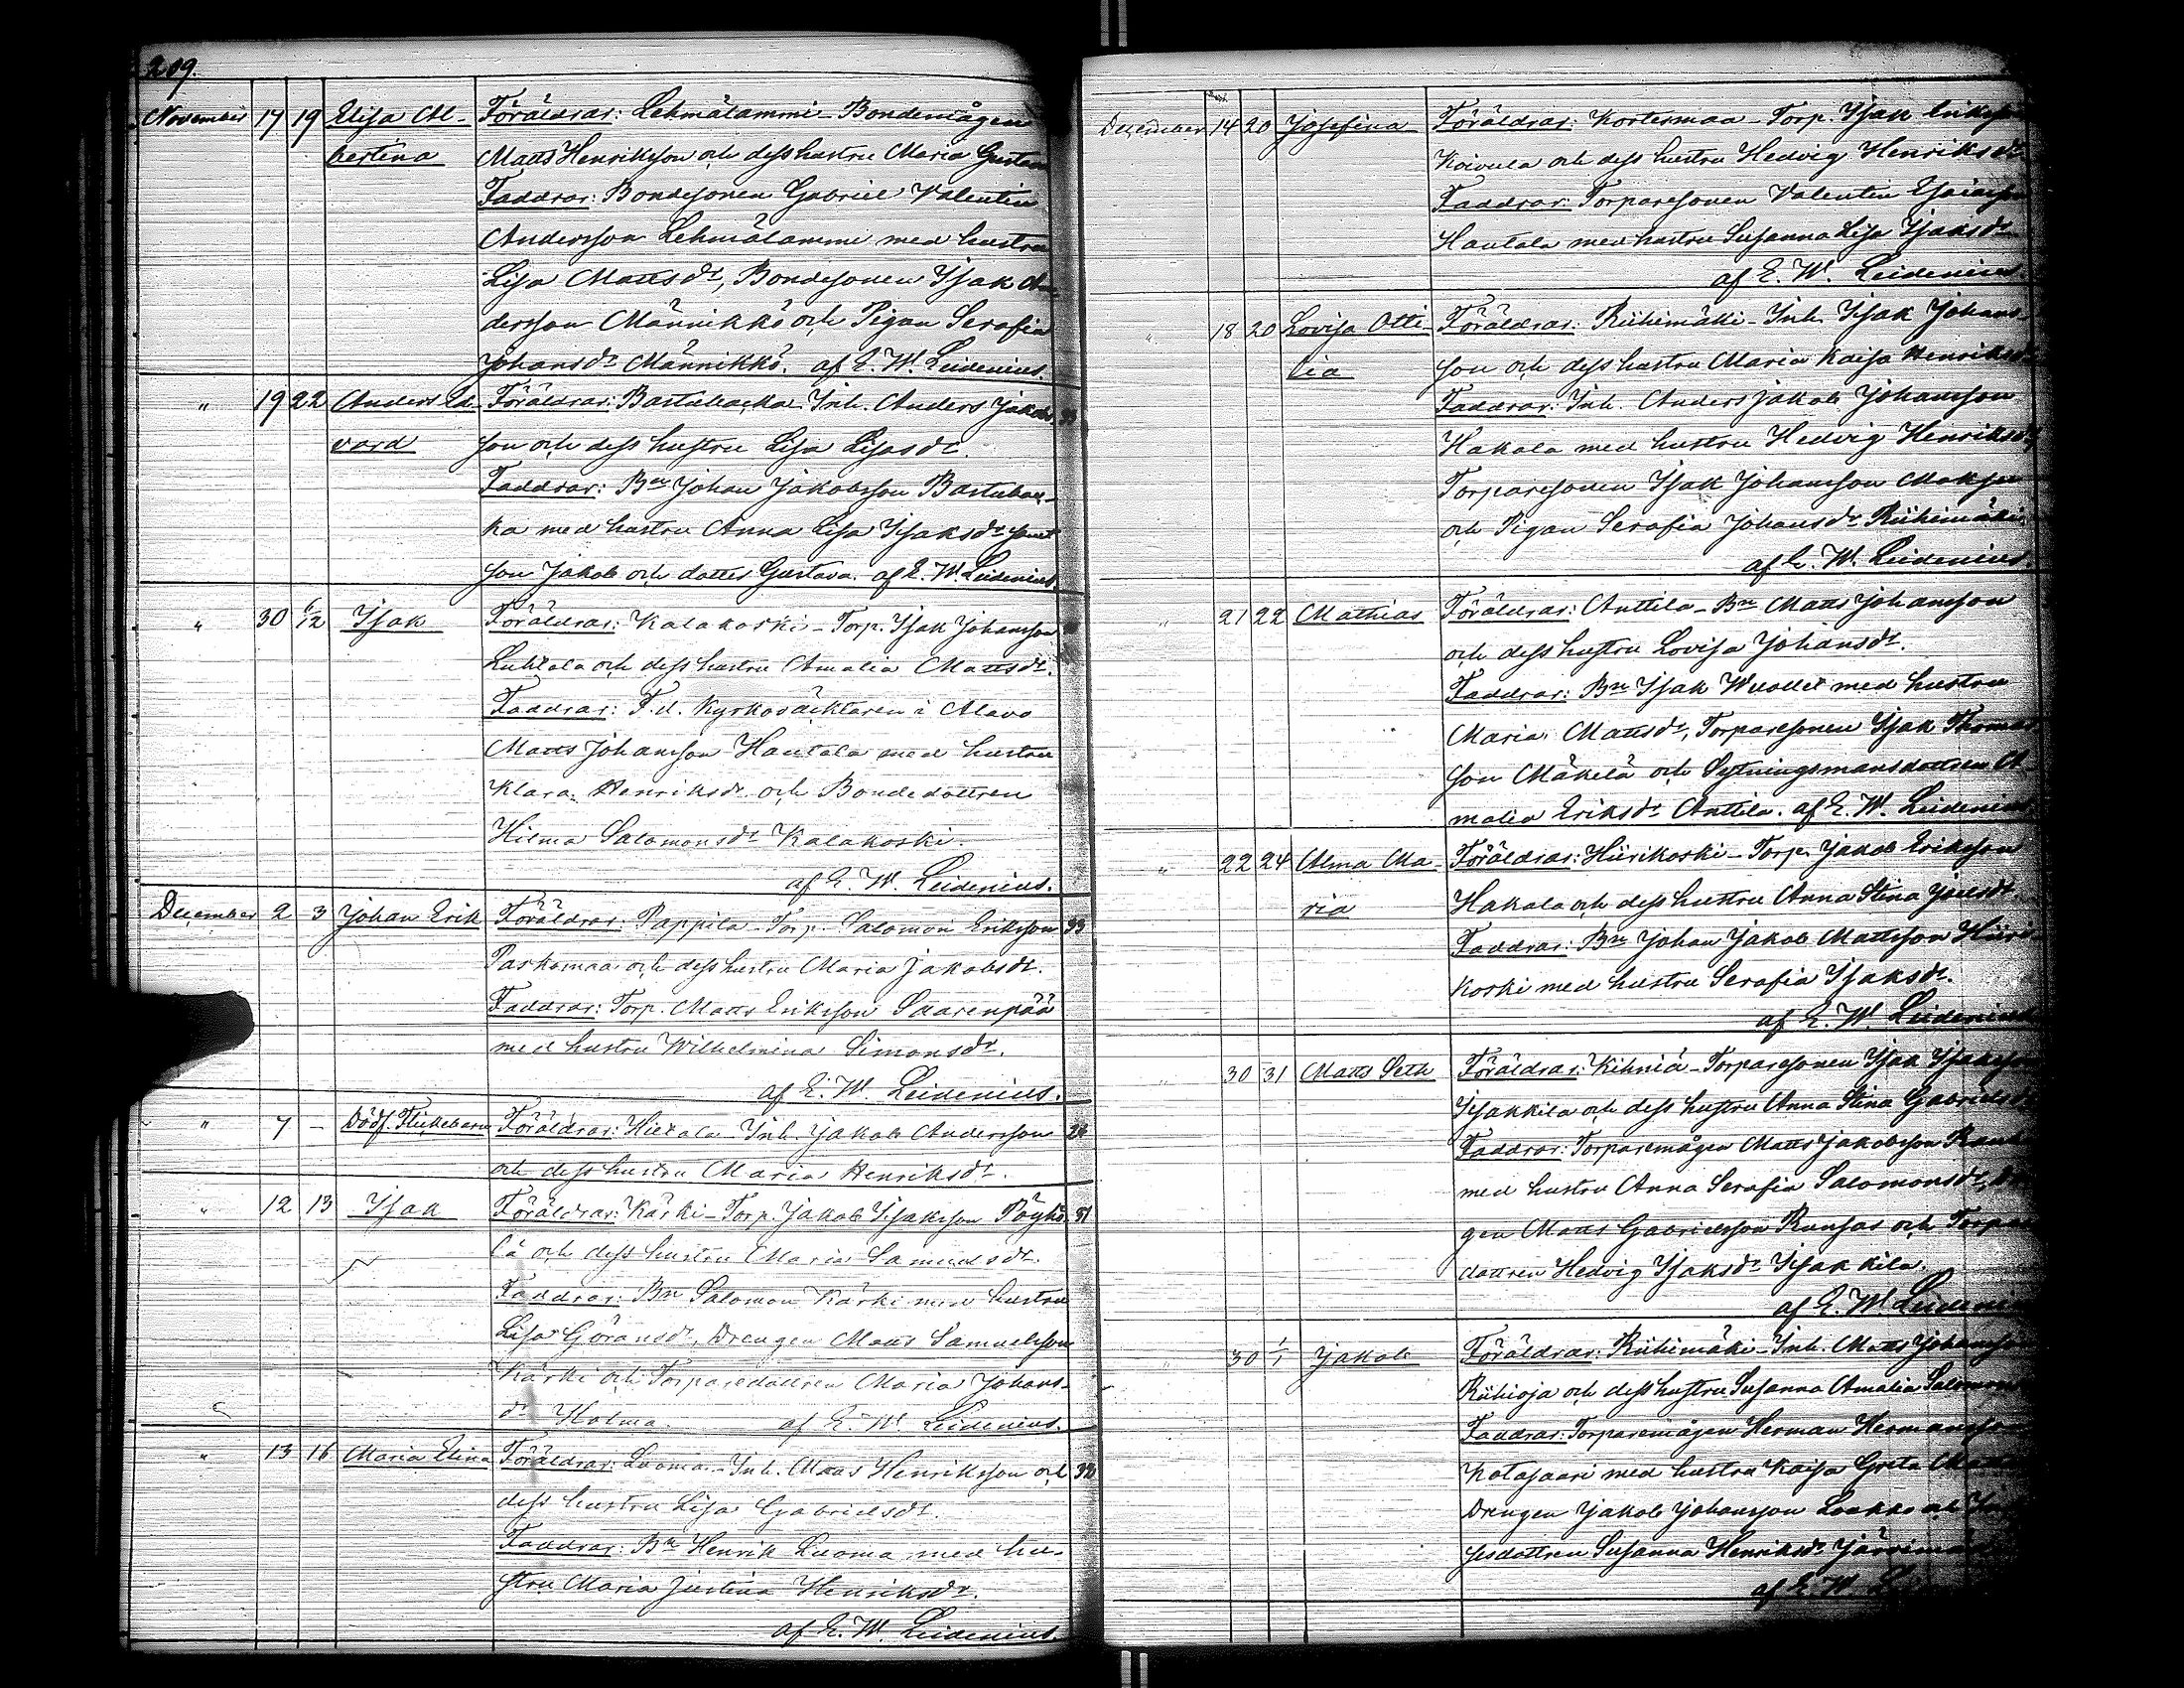 209.
November 17 19 Elisa Al- Föräldrar: Lehmälammi Bondemågen
bertina Matts Henriksson och dess hustru Maria Gustava
Faddrar: Bondesonen Gabriel Valentin
Andersson Lehmälammi med hustru
Lisa Mattsdr, Bondesonen Isak An-
dersson Männikkö och Pigan Serafia
Johansdr Männikkö. af E. W. Leidenius.
" 19 22 Anders Ed- Föräldrar: Bastubacka Inh. Anders Jakobs-
vard son och dess hustru Lisa Lisasdr.
Faddrar: Bn Johan Jakobsson Bastubac-
ka med hustru Anna Lisa Isaksdr samt
son Jakob och dotter Gustava. af E. W. Leidenius.
" 30 6/12 Isak Föräldrar: Kalakoski - Torp. Isak Johansson
Luhtala och dess hustru Amalia Mattsdr.
Faddrar: F.d. Kyrkoväcktaren i Alavo
Matts Johansson Hautala med hustru
Klara Henriksdr och Bondedottren
Hilma Salomonsdr Kalakoski.
af E. W. Leidenius.
December 2 3 Johan Erik Föräldrar: Pappila - Torp. Salomon Eriksson 33
Paskomaa och dess hustru Maria Jakobsdr.
Faddrar: Torp. Matts Eriksson Saarenpää
med hustru Wilhelmina Simonsdr.
af E. W. Leidenius.
" 7 - Dödf. Flickebarn Föräldrar: Hietala - Inh. Jakob Andersson
och dess hustru Maria Henriksdr.
" 12 13 Isak Föräldrar: Kärki - Torp. Jakob Isaksson Pöykö-
lä och dess hustru Maria Samuelsdr.
Faddrar: Bn Salomon Kärki med hustru
Lisa Göransdr, Drengen Matts Samuelsson
Kärki och Torparedottren Maria Johans-
dr Holma. af E. W. Leidenius.
" 13 16 Maria Elina Föräldrar: Luoma - Inh. Matts Henriksson och
dess hustru Lisa Gabrielsdr.
Faddrar: Bn Henrik Luoma med hu-
stru Maria Justina Henriksdr.
af E. W. Leidenius.
December 14 20 Josefina Föräldrar: Kortesmaa - Torp. Isak Eriksson
Koivula och dess hustru Hedvig Henriksdr
Faddrar: Torparesonen Valentin Esaiasson
Hautala med hustru Susanna Lisa Isaksdr
af E. W. Leidenius
" 18 20 Lovisa Otti- Föräldrar: Riihimäki - Inh. Isak Johans-
lia son och dess hustru Maria Kaisa Henriksdr
Faddrar: Inh. Anders Jakob Johansson
Hakala med hustru Hedvig Henriksdr,
Torparesonen Isak Johansson
och Pigan Serafia Johansdr Riihimäki
af E. W. Leidenius.
" 21 22 Mathias Föräldrar: Anttila - Bn Matts Johansson
och dess hustru Lovisa Johansdr.
Faddrar: Bn Isak Wuollet med hustru
Maria Mattsdr, Torparesonen Isak Thomas-
son Mäkelä och Sytningsmansdottren A-
malia Eriksdr Anttila. af E. W. Leidenius
" 22 24 Alma Ma- Föräldrar: Hiirikoski - Torp. Jakob Eriksson
ria Hakala och dess hustru Anna Stina
Faddrar: Bn Johan Jakob Mattsson Hiiri-
koski med hustru Serafia Isaksdr.
af E. W. Leidenius
" 30 31 Matts Seth Föräldrar: Kihniä - Torparesonen Isak Isaksson
Isakkila och dess hustru Anna Stina Gabrielsdr
Faddrar: Torparemågen Matts Jakobsson
med hustru Anna Serafia Salomonsdr, Dren-
gen Matts Gabrielsson Runsas och Torpare-
dottren Hedvig Isaksdr Isakkila.
af E. W. Leidenius
" 30 1/1 Jakob Föräldrar: Riihimäki - Inh. Matts Johansson
Riihioja och dess hustru Susanna Amalia Salomons
Faddrar: Torparemågen Herman Hermansson
Katajaari med hustru Kaisa Greta
Drengen Jakob Johansson Luokko och
sesdottren Susanna Henriksdr
af E. W.